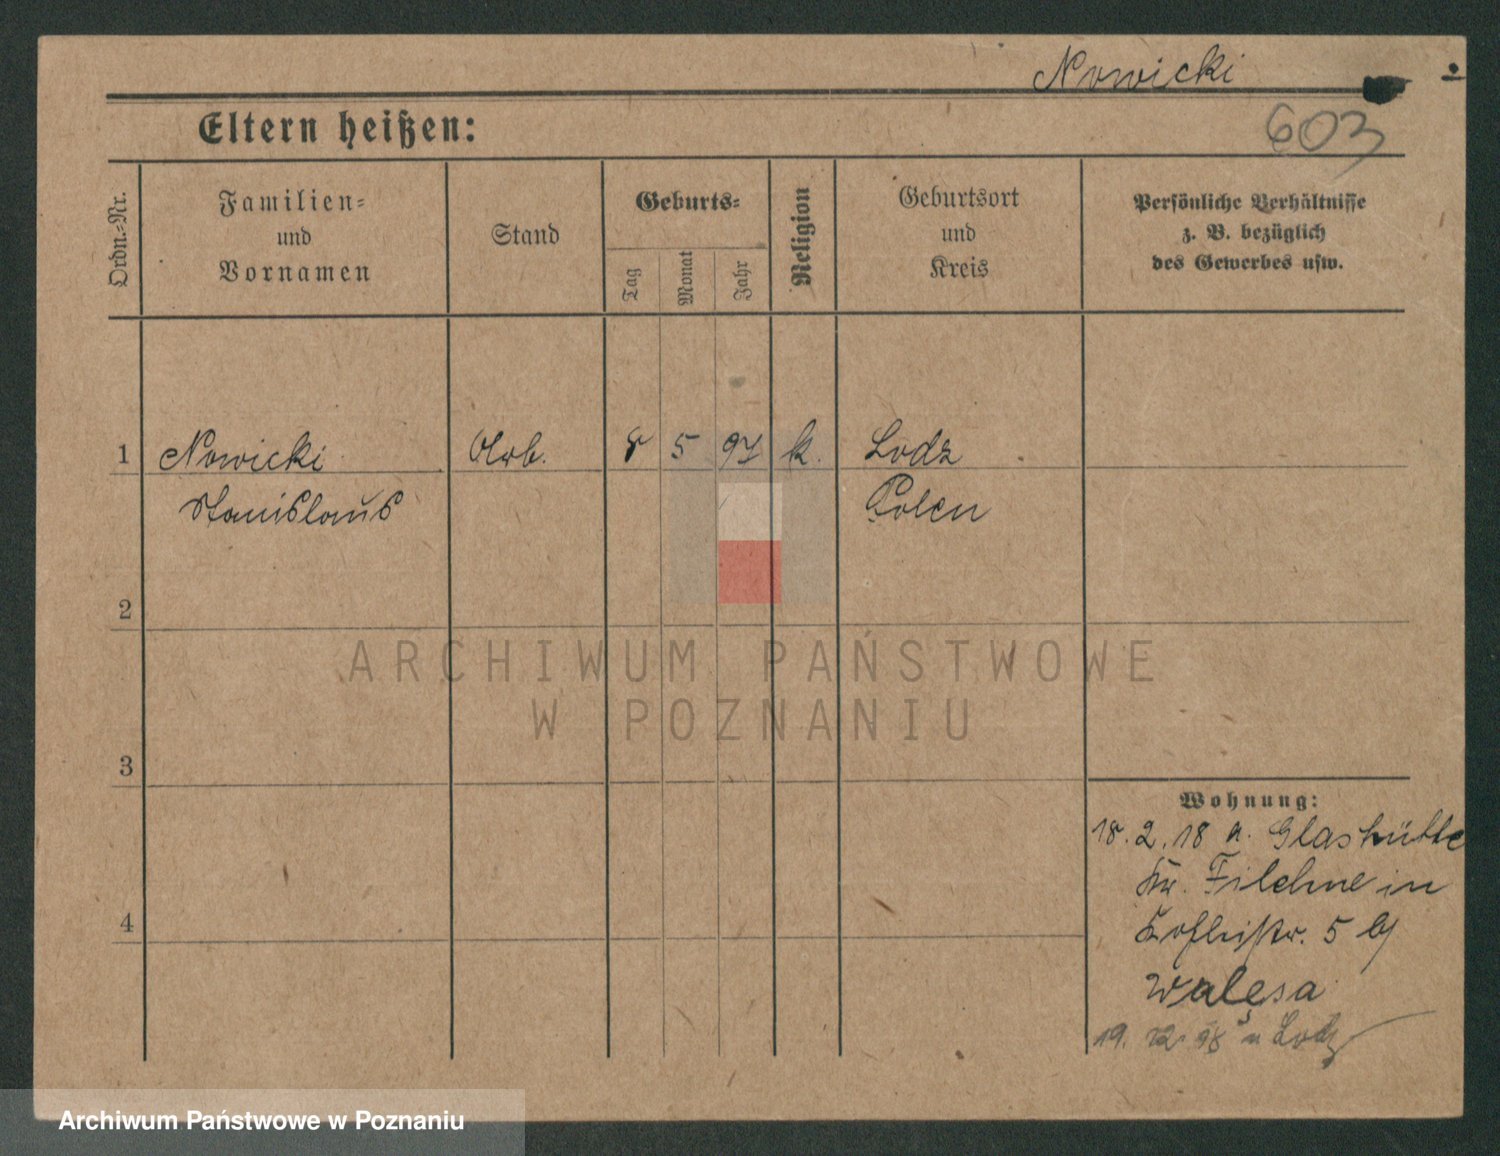 Nowicki
603
Eltern heißen:
Ordn.-Nr.
Familien-
und
Vornamen
Stand
Geburts-
Tag
Monat
Jahr
Religion
Geburtsort
und
Kreis
Persönliche Verhältnisse
z. B. bezüglich
des Gewerbes usw.
1 Nowicki Arb. 8 5 97 k. Lodz
Stanislaus Polen
2
ARCHIWUM PAŃSTWOWE
W POZNANIU
3
Wohnung:
18.2.18 a. Glashütte
Kr. Filehne in
5 b/
Walęsa
4
19. 12. 18 n Lodz
Archiwum Państwowe w Poznaniu